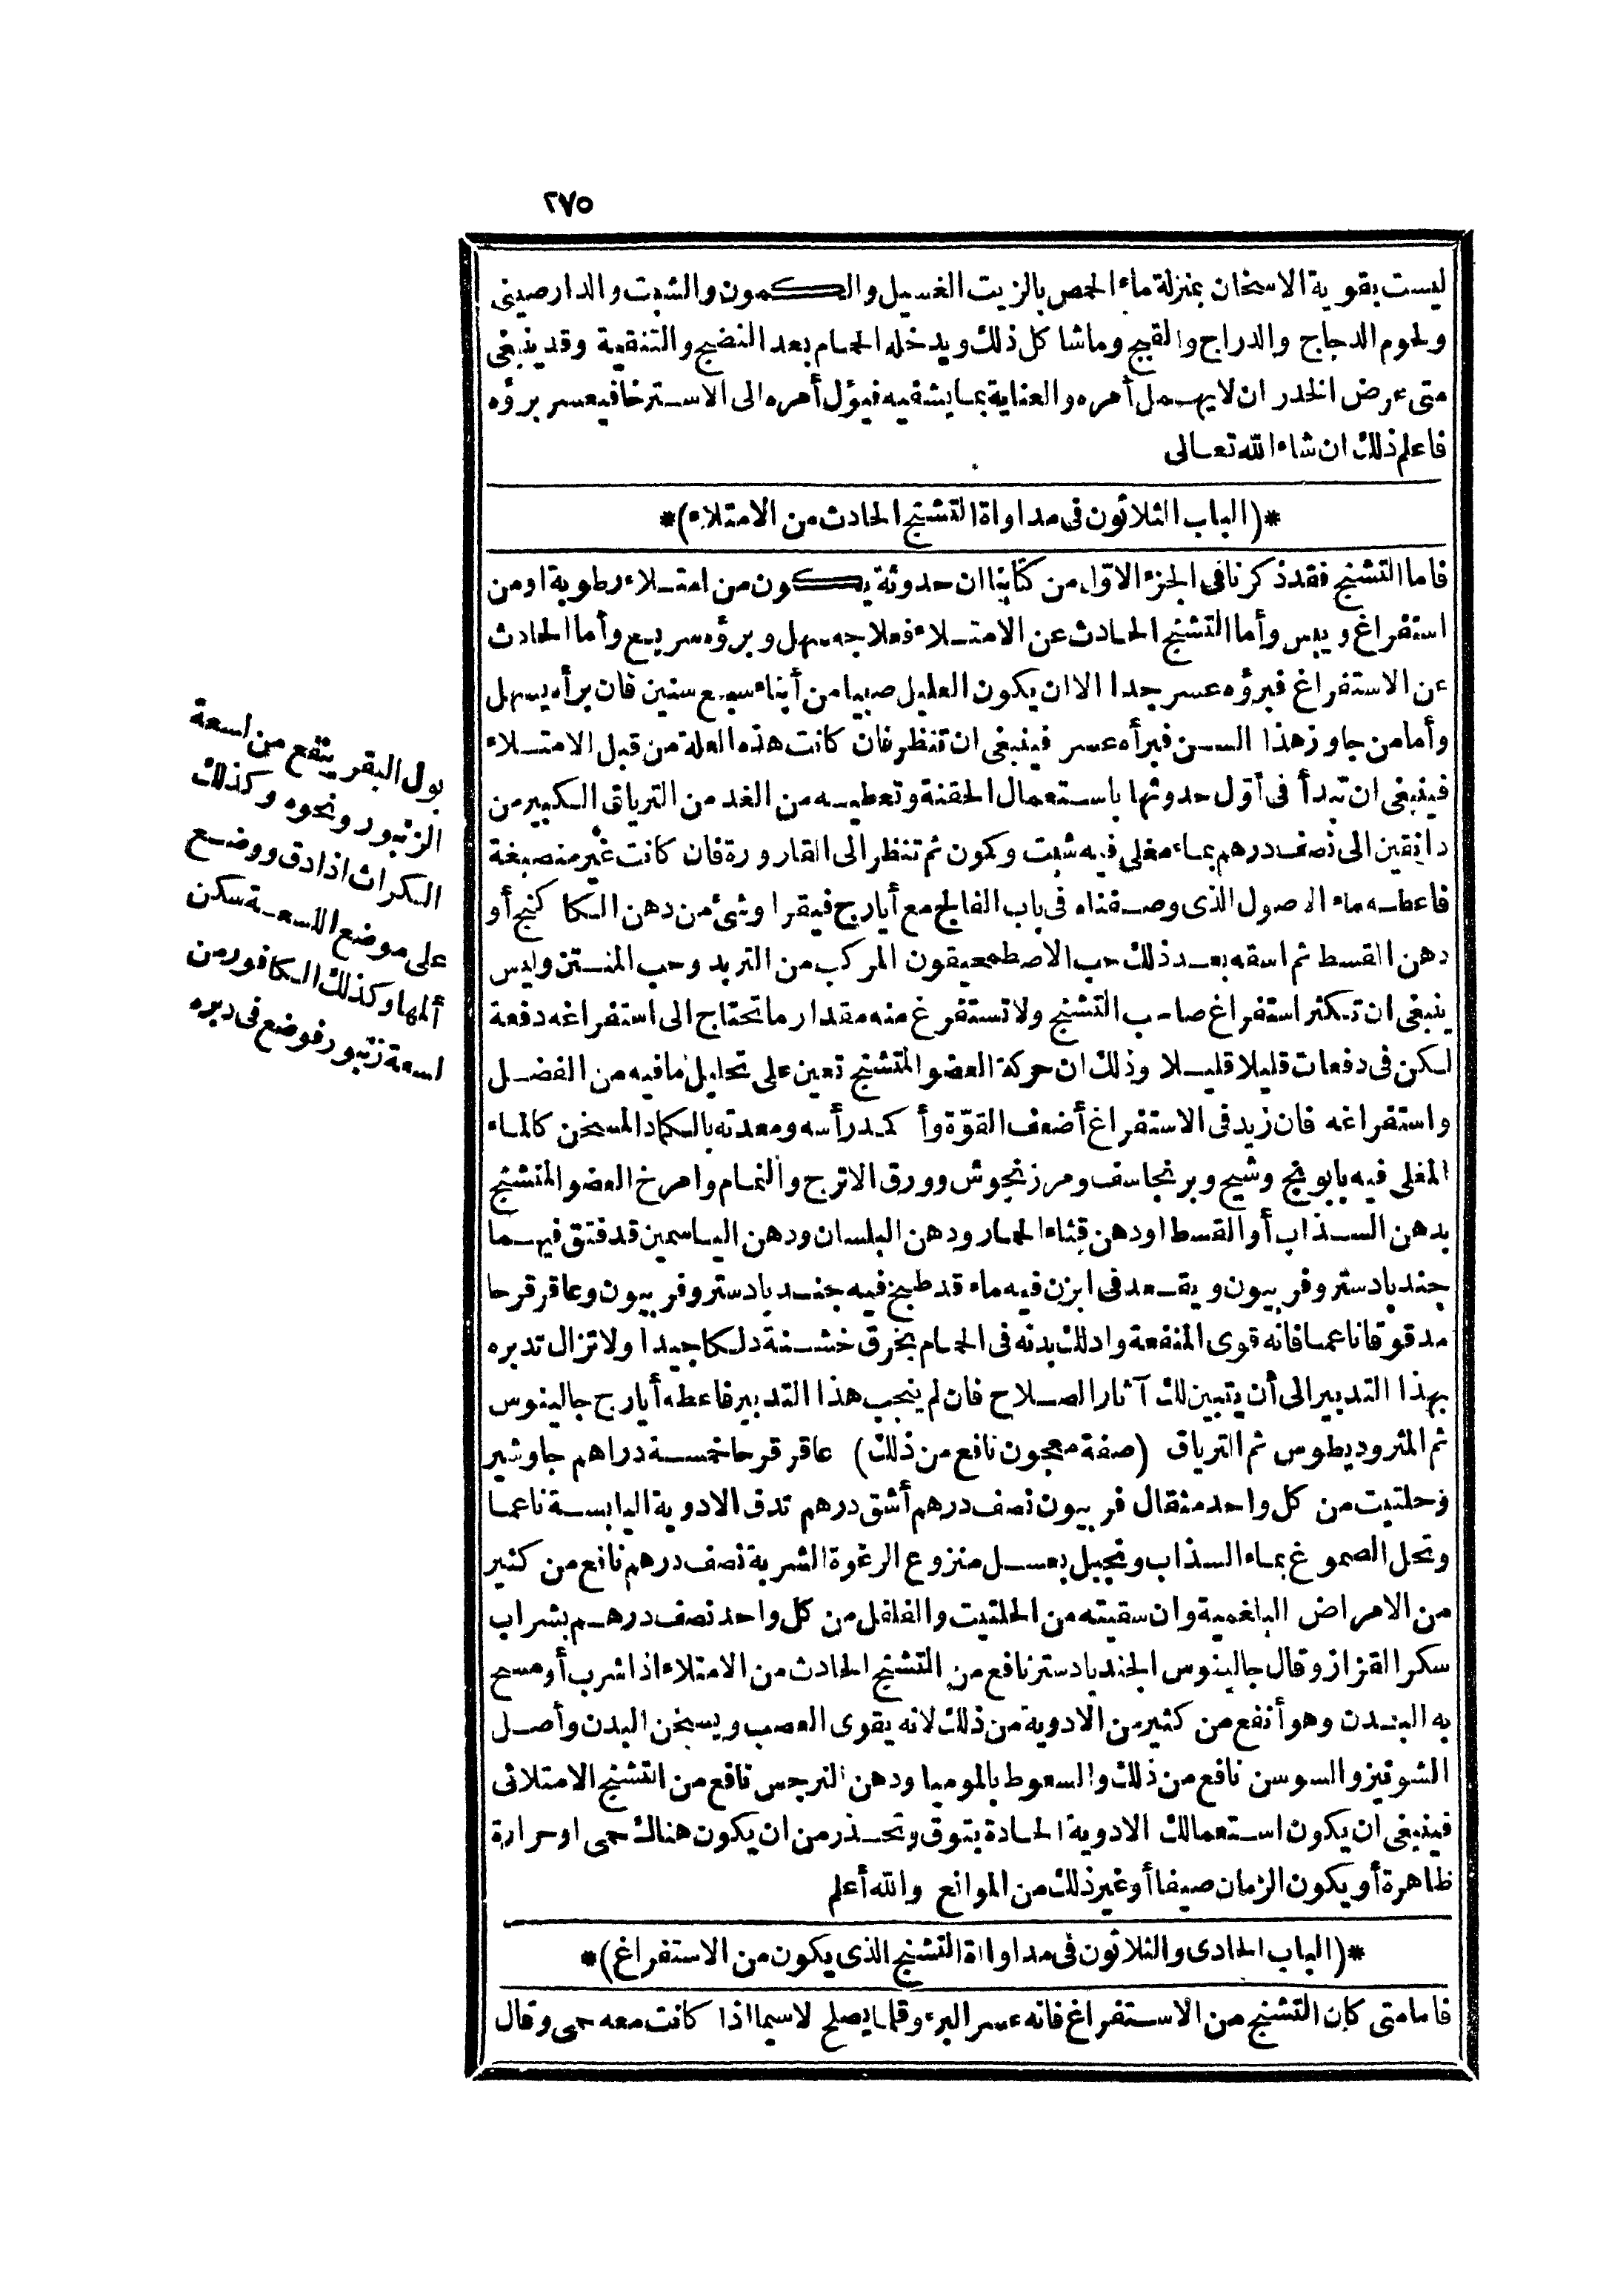 ٢٧٥
ليست بقوية الاسخان بمنزلة ماء الحمص بالزيت الغسيل والكمون والشبت والدارصيني
ولحوم الدجاج والدراج والقبج وماشاكل ذلك ويدخله الحمام بعد النضج والتنقية وقد ينبغى
متى عرض الخدر ان لا يهمل أمره والعناية بما يشفيه فيؤل أمره الى الاسترخا فيعسر برؤه
فاعلم ذلك ان شاء الله تعالى
*(الباب الثلاثون فى مداواة التشنج الحادث من الامتلاء)*
فاما التشنج فقد ذكرنا فى الجزء الاوّل من كتابنا ان حدوثة يكون من امتلاء رطوبة او من
استفراغ ويبس وأما التشنج الحادث عن الامتلاء فعلاجه سهل وبرؤه سريع وأما الحادث
عن الاستفراغ فبرؤه عسر جدا الا ان يكون العليل صبيا من أبناء سبع سنين فان برأه يسهل
وأما من جاوز هذا السن فبرأه عسر فينبغى ان تنظر فان كانت هذه العلة من قبل الامتلاء
فينبغى ان تبدأ فى أوّل حدوثها باستعمال الحقنة وتعطيه من الغد من الترياق الكبير من
دانقين الى نصف درهم بماء مغلى فيه شبت وكمون ثم تنظر الى القارورة فان كانت غير منصبغة
فاعطه ماء الاصول الذى وصفناه فى باب الفالج مع أيارج فيقرا وشئ من دهن الكا كنج أو
دهن القسط ثم اسقه بعد ذلك حب الاصطمحيقون المركب من التربد وحب المنتن وليس
ينبغى ان تكثر استفراغ صاحب التشنج ولا تستفرغ منه مقدار ما تحتاج الى استفراغه دفعة
لكن فى دفعات قليلا قليلا وذلك ان حركة العضو المتشنج تعين على تحليل ما فيه من الفضل
واستفراغه فان زيد فى الاستفراغ أضعف القوّة وأكمد رأسه ومعدته بالكماد المسخن كالماء
المغلى فيه بابونج وشيح وبرنجاسف ومرزنجوش وورق الاترج والنمام وامرخ العضو المتشنج
بدهن السذاب أو القسط او دهن قثاء الحمار ودهن البلسان ودهن الياسمين قد فتق فيهما
جندبادستر وفربيون ويقعد فى ابزن فيه ماء قد طبخ فيه جندبادستر وفربيون وعاقرقرحا
مدقوقا ناعما فانه قوى المنفعة وادلك بدنه فى الحمام بخرق خشنة دلكا جيدا ولا تزال تدبره
بهذا التدبير الى أن يتبين لك آثار الصلاح فان لم ينجب هذا التدبير فاعطه أيارج جالينوس
ثم المثروديطوس ثم الترياق (صفة معجون نافع من ذلك) عاقرقرحا خمسة دراهم جاوشير
وحلتيت من كل واحد مثقال فربيون نصف درهم أشق درهم تدق الادوية اليابسة ناعما
وتحل الصموغ بماء السذاب وتجبل بعسل منزوع الرغوة الشربة نصف درهم نافع من كثير
من الامراض البلغمية وان سقيته من الحلتيت والفلفل من كل واحد نصف درهم بشراب
سكر القزاز وقال جالينوس الجندبادستر نافع من التشنج الحادث من الامتلاء اذا شرب أو مسح
به البدن وهو أنفع من كثير من الادوية من ذلك لانه يقوى العصب ويسخن البدن وأصل
الشونيز والسوسن نافع من ذلك والسعوط بالموميا ودهن النرجس نافع من التشنج الامتلائى
فينبغى ان يكون استعمالك الادوية الحادة بتوق وتحذر من ان يكون هناك حمى او حرارة
ظاهرة أو يكون الزمان صيفا أو غير ذلك من الموانع والله أعلم
*(الباب الحادى والثلاثون فى مداواة التشنج الذى يكون من الاستفراغ)*
فاما متى كان التشنج من الاستفراغ فانه عسر البرء وقلما يصلح لاسيما اذا كانت معه حمى وقال
بول البقر ينفع من لسعة
الزنبور ونحوه وكذلك
الكراث اذا دق ووضع
على موضع اللسعة سكن
ألمها وكذلك الكافور من
لسعة زنبور فوضع فى دبره